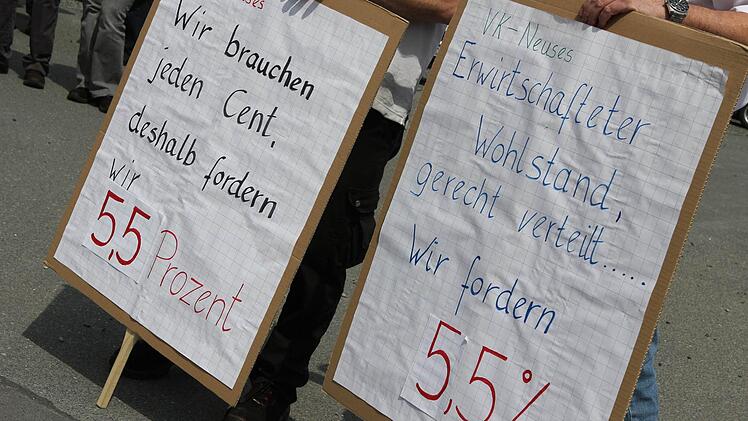 Neuses
Wir brauchen
jeden Cent,
deshalb fordern
wir
5,5 Prozent
VK-Neuses
Erwirtschafteter
Wohlstand,
gerecht verteilt.....
Wir fordern
5,5%